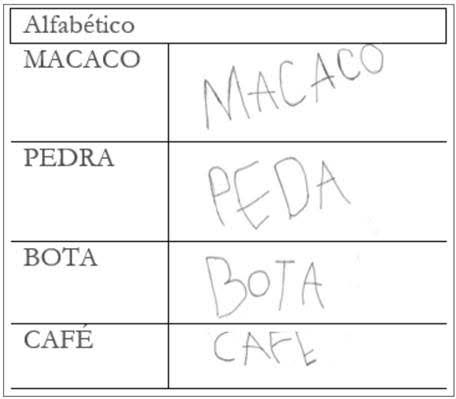 Alfabético
MACACO MACACO
PEDRA PEDA
BOTA BOTA
CAFÉ CAFE